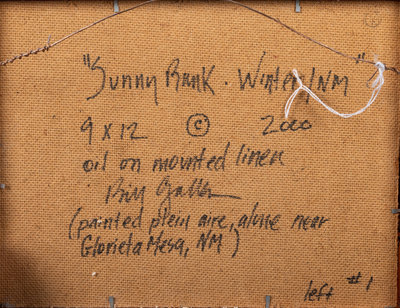 "Sunny Bank. Winter/NM"
9 x 12 © 2000
oil on mounted linen
Bill Gallen
(painted plein aire, alone near
Glorieta Mesa, NM)
left #1